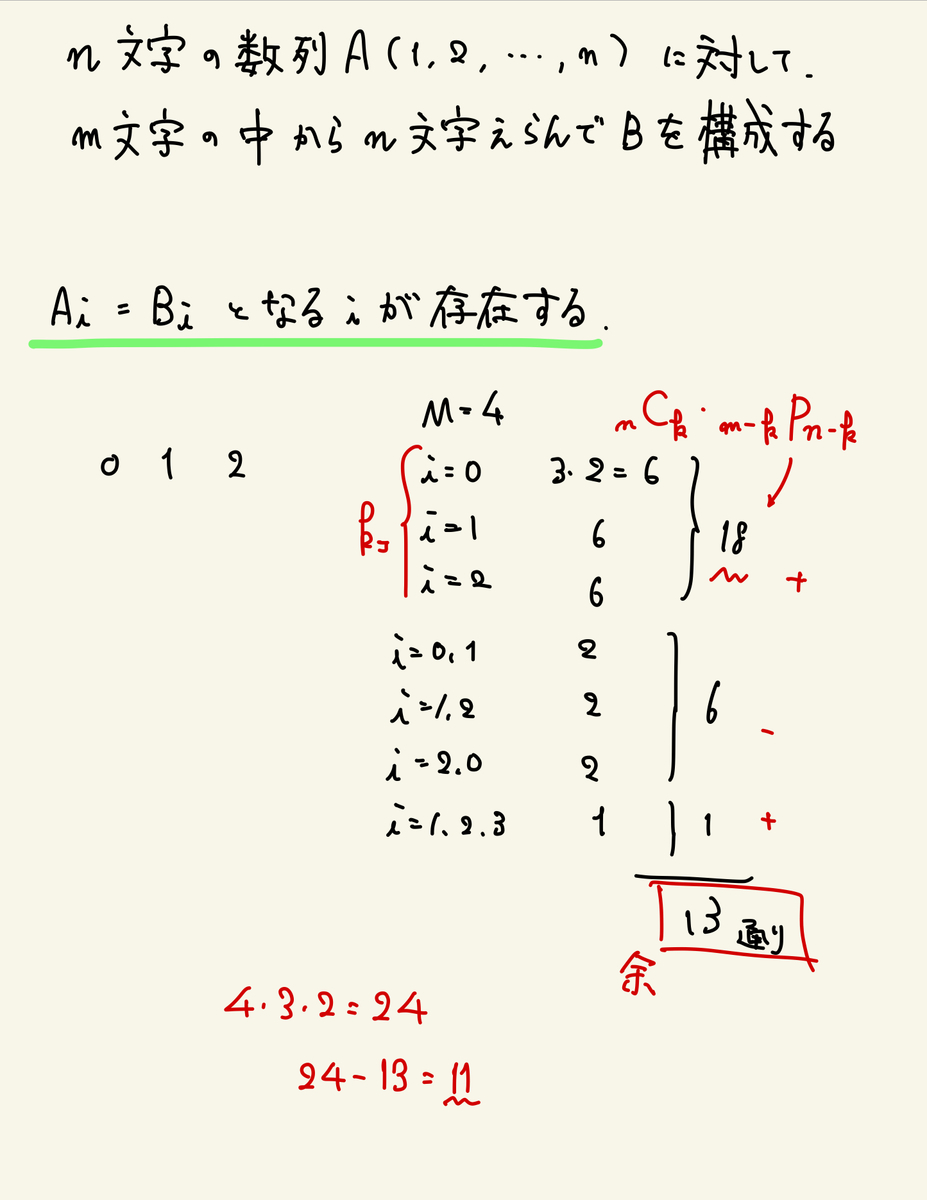 n文字の数列A(1, 2, …, n)に対して.
m文字の中からn文字えらんでBを構成する
Ai = Bi となるiが存在する.
M=4
nCk・m-kPn-k
0 1 2
i=0 3・2=6
i=1 6 18
i=2 6 +
i=0,1 2
i=1.2 2 6 -
i=2.0 2
i=1.2.3 1 1 +
13通り
余
4・3・2=24
24-13=11